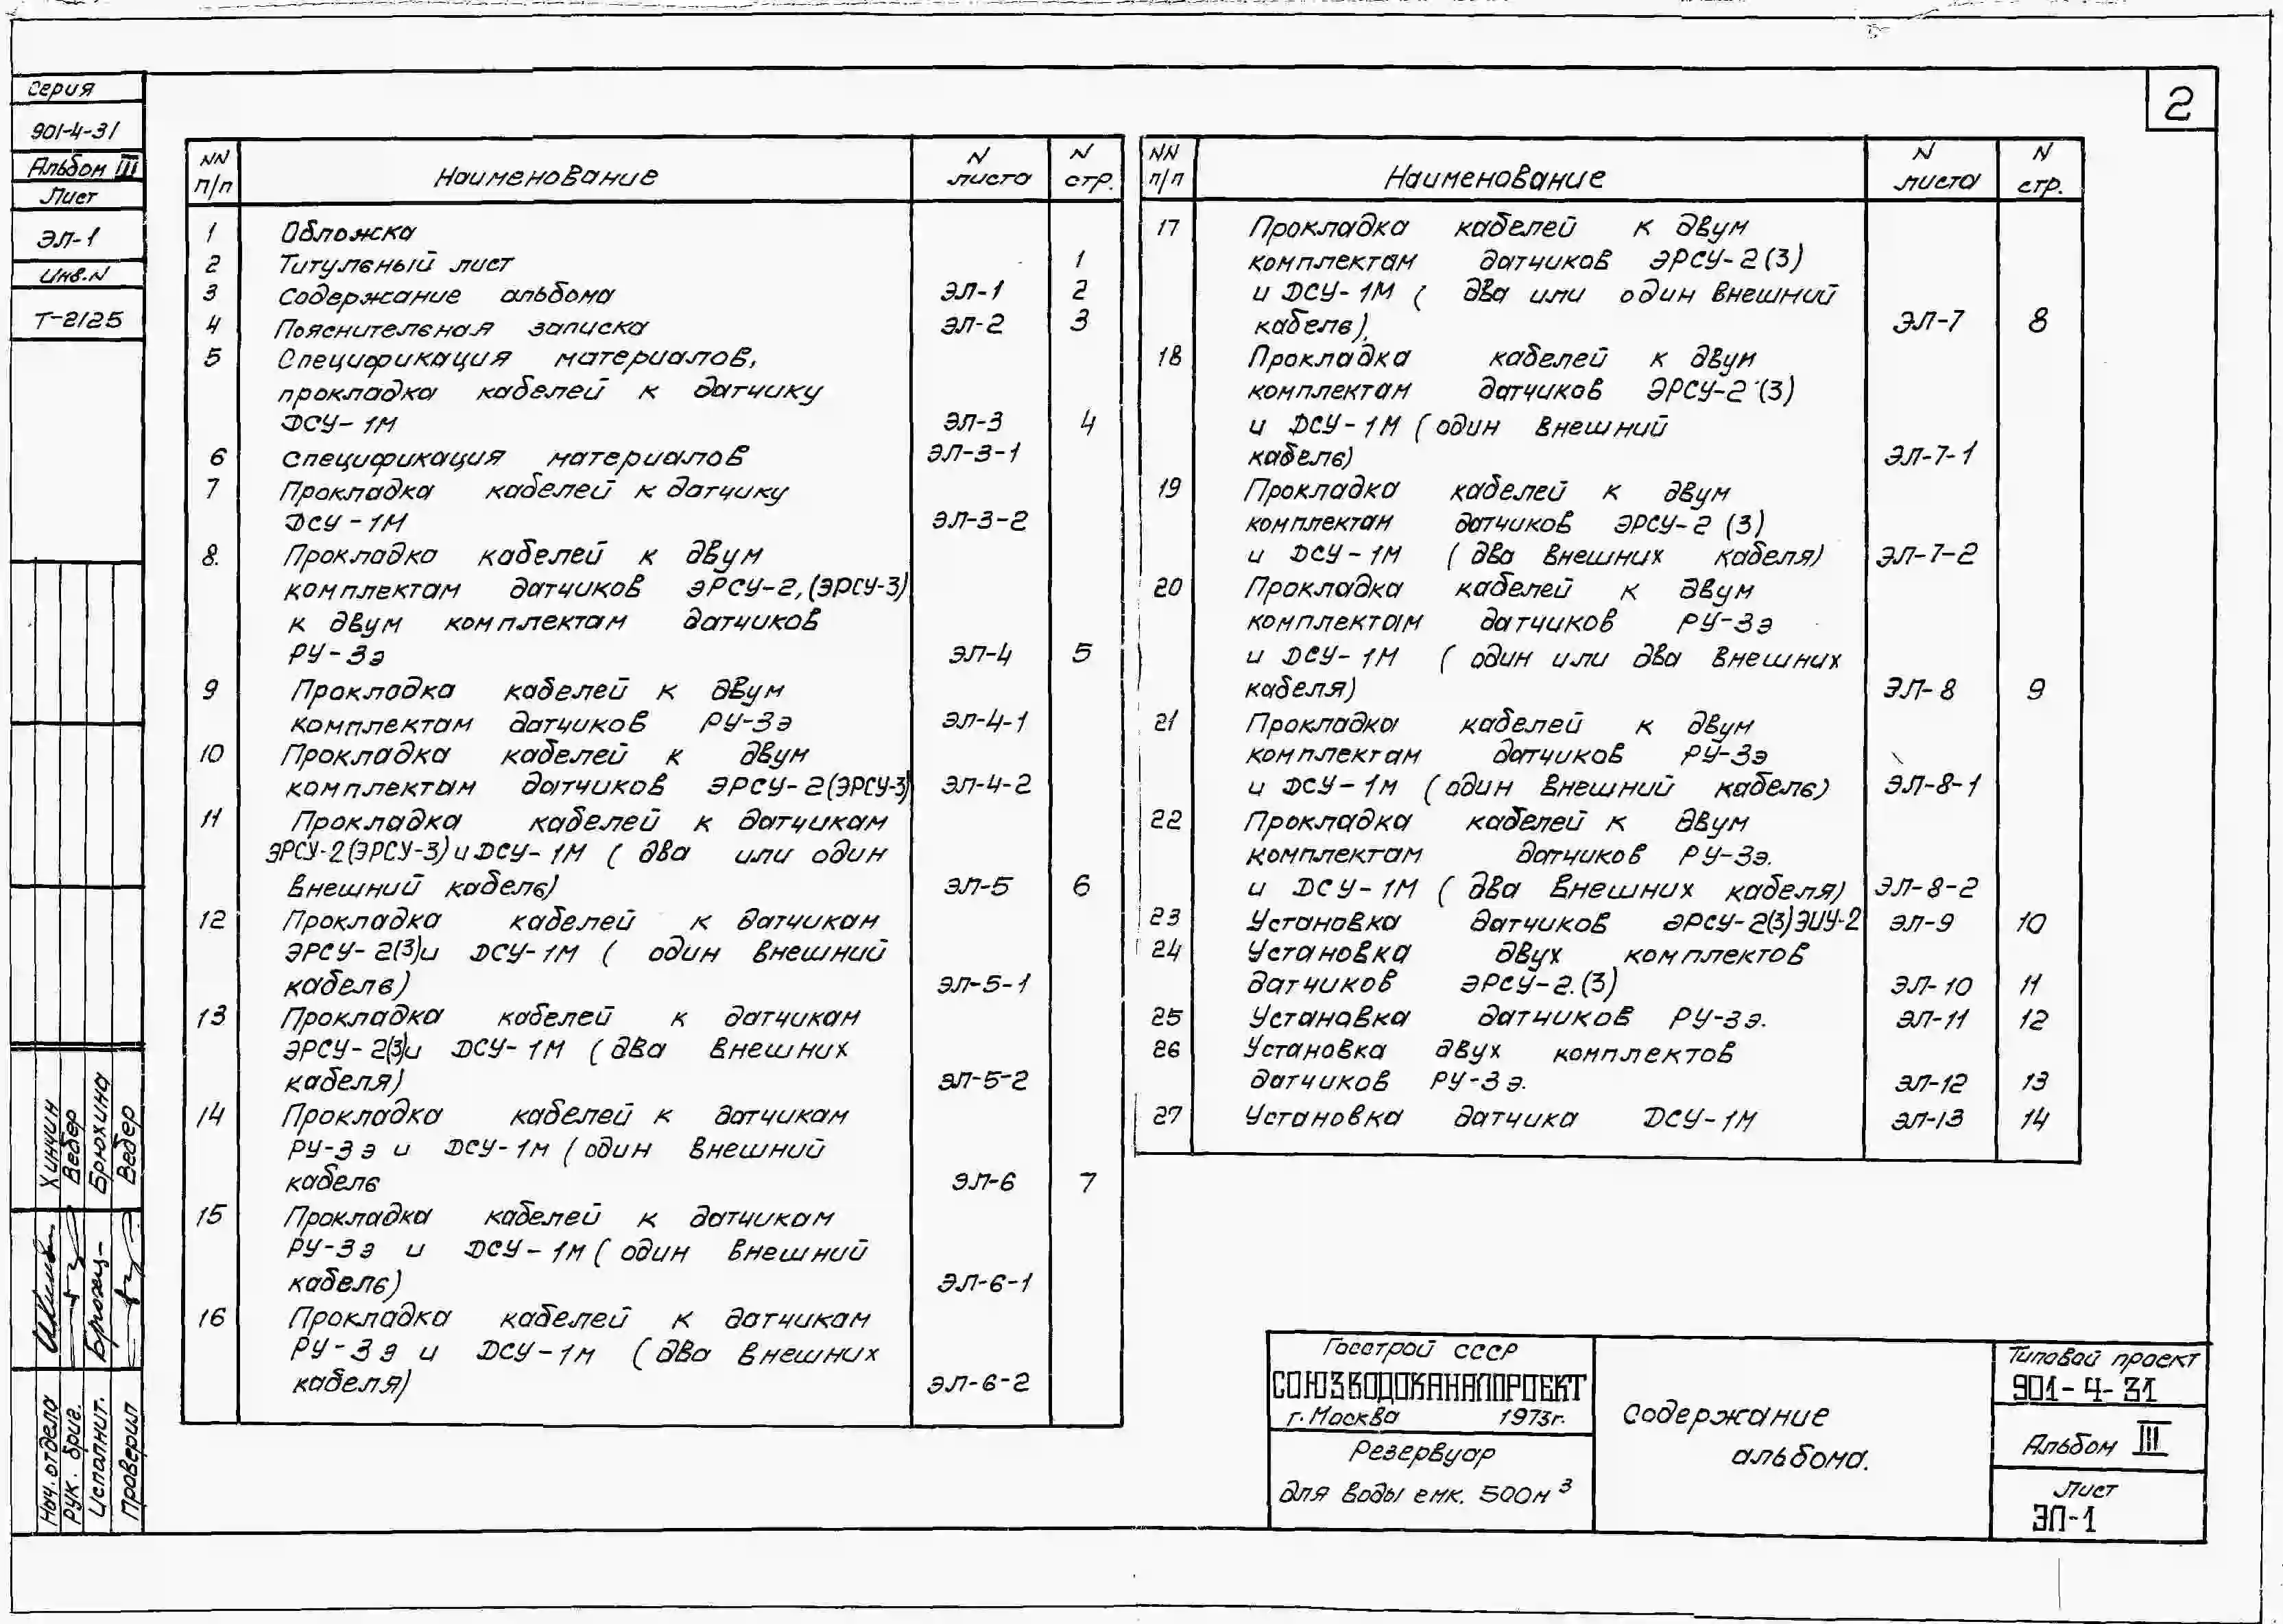 2
Серия
901-4-31
Альбом III
Лист
ЭЛ-1
Инв.N
Т-2125
NN п/п Наименование N листа N стр.
1 Обложка
2 Титульный лист 1
3 Содержание альбома ЭЛ-1 2
4 Пояснительная записка ЭЛ-2 3
5 Спецификация материалов,
прокладка кабелей к датчику
ДСУ-1М ЭЛ-3 4
6 Спецификация материалов ЭЛ-3-1
7 Прокладка кабелей к датчику
ДСУ-1М ЭЛ-3-2
8. Прокладка кабелей к двум
комплектам датчиков ЭРСУ-2,(ЭРСУ-3)
к двум комплектам датчиков
РУ-3э ЭЛ-4 5
9 Прокладка кабелей к двум
комплектам датчиков РУ-3э ЭЛ-4-1
10 Прокладка кабелей к двум
комплектам датчиков ЭРСУ-2(ЭРСУ-3) ЭЛ-4-2
11 Прокладка кабелей к датчикам
ЭРСУ-2(ЭРСУ-3) и ДСУ-1М ( два или один
внешний кабель) ЭЛ-5 6
12 Прокладка кабелей к датчикам
ЭРСУ-2(3)и ДСУ-1М ( один внешний
кабель) ЭЛ-5-1
13 Прокладка кабелей к датчикам
ЭРСУ-2(3)и ДСУ-1М ( два внешних
кабеля) ЭЛ-5-2
14 Прокладка кабелей к датчикам
РУ-3э и ДСУ-1М ( один внешний
кабель ЭЛ-6 7
15 Прокладка кабелей к датчикам
РУ-3э и ДСУ-1М ( один внешний
кабель) ЭЛ-6-1
16 Прокладка кабелей к датчикам
РУ-3э и ДСУ-1М ( два внешних
кабеля) ЭЛ-6-2
NN п/п Наименование N листа N стр.
17 Прокладка кабелей к двум
комплектам датчиков ЭРСУ-2(3)
и ДСУ-1М ( два или один внешний
кабель), ЭЛ-7 8
18 Прокладка кабелей к двум
комплектам датчиков ЭРСУ-2 (3)
и ДСУ-1М ( один внешний
кабель) ЭЛ-7-1
19 Прокладка кабелей к двум
комплектам датчиков ЭРСУ-2 (3)
и ДСУ-1М ( два внешних кабеля) ЭЛ-7-2
20 Прокладка кабелей к двум
комплектам датчиков РУ-3э
и ДСУ-1М ( один или два внешних
кабеля) ЭЛ-8 9
21 Прокладка кабелей к двум
комплектам датчиков РУ-3э
и ДСУ-1М ( один внешний кабель) ЭЛ-8-1
22 Прокладка кабелей к двум
комплектам датчиков РУ-3э.
и ДСУ-1М ( два внешних кабеля) ЭЛ-8-2
23 Установка датчиков ЭРСУ-2(3)ЭИУ-2 ЭЛ-9 10
24 Установка двух комплектов
датчиков ЭРСУ-2.(3) ЭЛ-10 11
25 Установка датчиков РУ-3э. ЭЛ-11 12
26 Установка двух комплектов
датчиков РУ-3э. ЭЛ-12 13
27 Установка датчика ДСУ-1М ЭЛ-13 14
Нач. отдела Хинчин
Рук. бриг. Вебер
Исполнит. Брюхина
Проверил Вебер
Госстрой СССР
СОЮЗВОДОКАНАЛПРОЕКТ
г. Москва 1973г.
Резервуар
для воды емк. 500м³
Содержание
альбома.
Типовой проект
901-4-31
Альбом III
Лист
ЭЛ-1